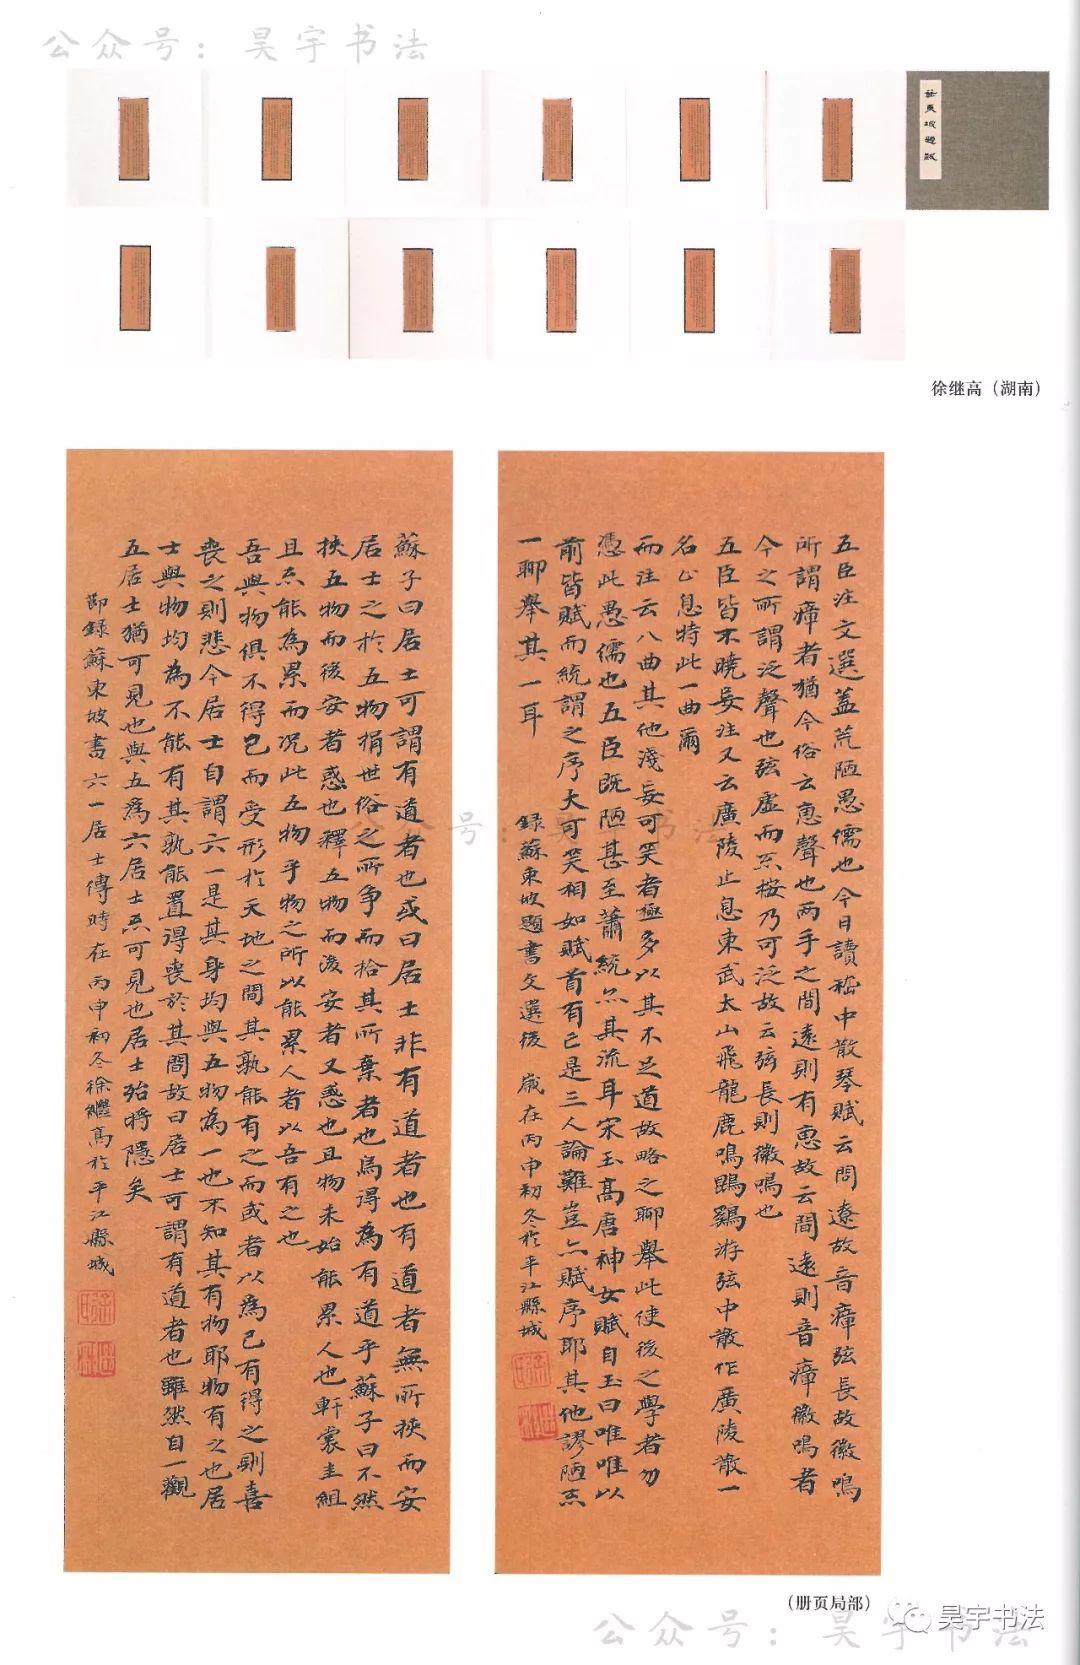 公众号：昊宇书法
蘇東坡題跋
徐继高（湖南）
五臣注文選蓋荒陋愚儒也今日讀嵇中散琴賦云間遼故音瘴弦長故徽鳴
所謂瘴者猶今俗云惠聲也两手之間遠則有惠故云間遠則音瘴徽鳴者
今之所謂泛聲也弦虛而不按乃可泛故云弦長則徽鳴也
五臣皆不曉妄注又云廣陵止息東武太山飛龍鹿鳴鵾鷄游弦中散作廣陵散一
名止息特此一曲爾
而注云八曲其他淺妄可笑者極多以其不足道故略之聊舉此使後之學者勿
憑此愚儒也五臣既陋甚至蕭統亦其流耳宋玉高唐神女賦自玉曰唯唯以
前皆賦而統謂之序大可笑相如賦首有已是三人論難豈亦賦序耶其他謬陋不
一聊舉其一耳
錄蘇東坡題書文選後 歲在丙申初冬於平江縣城
蘇子曰居士可謂有道者也或曰居士非有道者也有道者無所挾而安
居士之於五物捐世俗之所争而拾其所棄者也烏得為有道乎蘇子曰不然
挾五物而後安者惑也釋五物而後安者又惑也且物未始能累人也軒裳圭組
且不能為累而况此五物乎物之所以能累人者以吾有之也
吾與物俱不得已而受形於天地之間其孰能有之而或者以為己有得之則喜
喪之則悲今居士自謂六一是其身均與五物為一也不知其有物耶物有之也居
士與物均為不能有其孰能置得喪於其間故曰居士可謂有道者也雖然自一觀
五居士猶可見也與五為六居士不可見也居士殆將隱矣
節錄蘇東坡書六一居士傳時在丙申初冬徐繼高於平江縣城
公众号：昊宇书法
（册页局部）
昊宇书法
公众号：昊宇书法